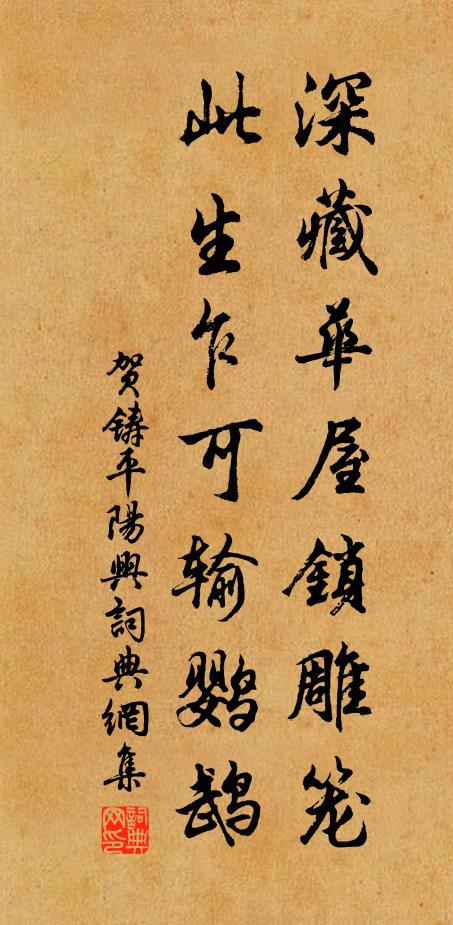 深藏華屋鎖雕笼
此生乍可输鹦鹉
贺铸平陽興詞典網集
詞典
网印